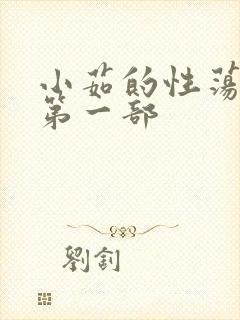 小茹的性荡
第一部
劉釗